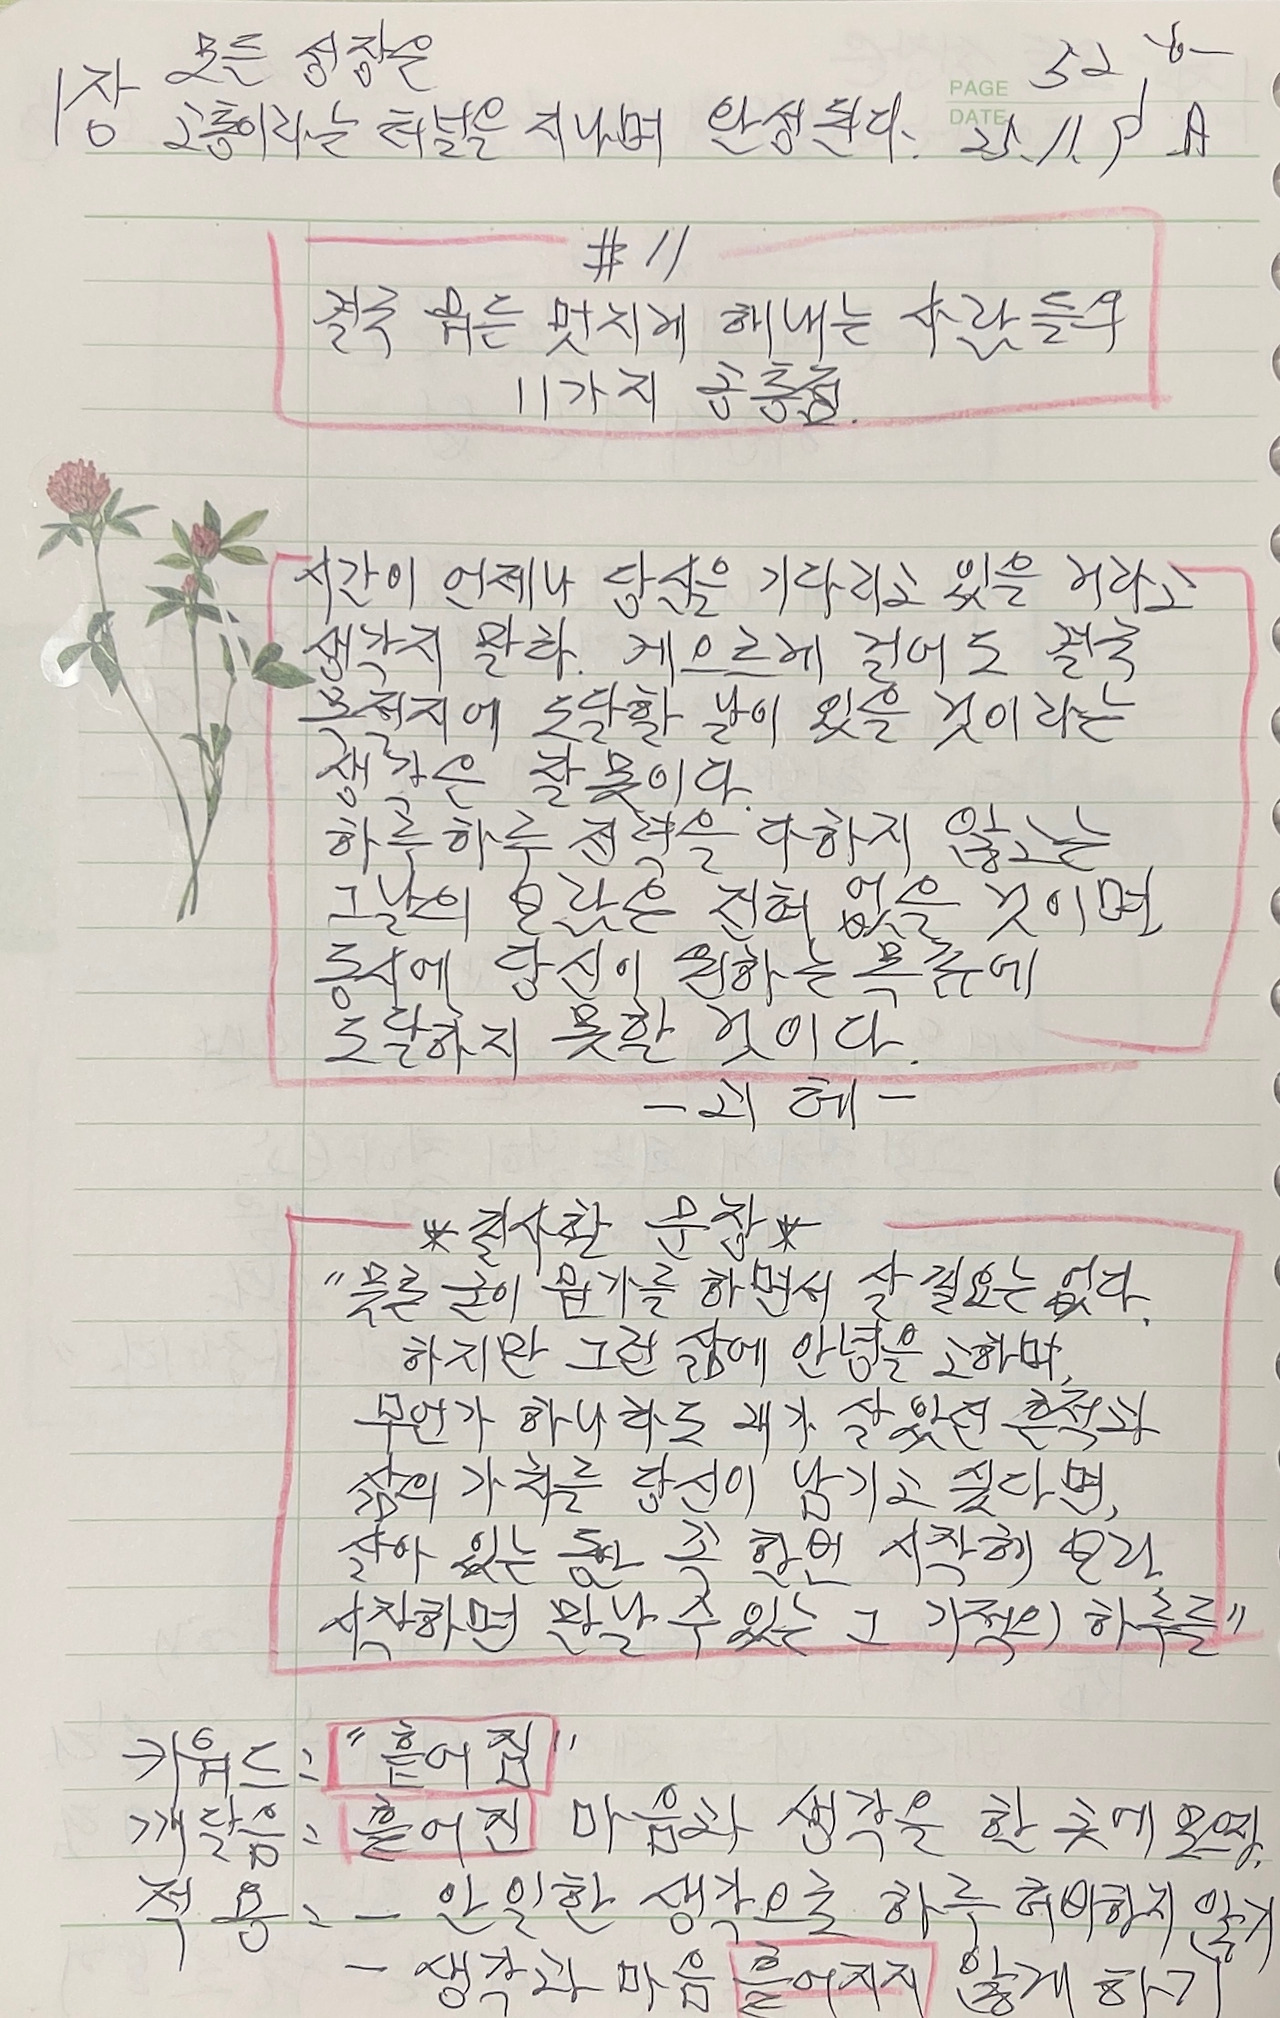 1장 모든 성장은
고통이라는 터널을 지나며 완성된다.
PAGE 52
DATE 25. 11. 9
#11
결국 뭐든 멋지게 해내는 사람들의
11가지 공통점.
시간이 언제나 당신을 기다리고 있을 거라고
생각지 말라. 게으르게 걸어도 결국
목적지에 도달할 날이 있을 것이라는
생각은 잘못이다.
하루하루 전력을 다하지 않고는
그날의 보람은 전혀 없을 것이며,
동시에 당신이 원하는 목표에
도달하지 못할 것이다.
- 괴테 -
*필사할 문장*
"물론 굳이 뭔가를 하면서 살 필요는 없다.
하지만 그런 삶에 안녕을 고하며,
무언가 하나라도 내가 살았던 흔적과
삶의 가치를 당신이 남기고 싶다면,
살아 있는 동안 꼭 한번 시작해 보라.
시작하면 만날 수 있는 그 기적의 하루를"
키워드: "흩어짐"
깨달음: 흩어진 마음과 생각을 한 곳에 모으자.
적용: - 안일한 생각으로 하루 허비하지 않기
- 생각과 마음 흩어지지 않게 하기